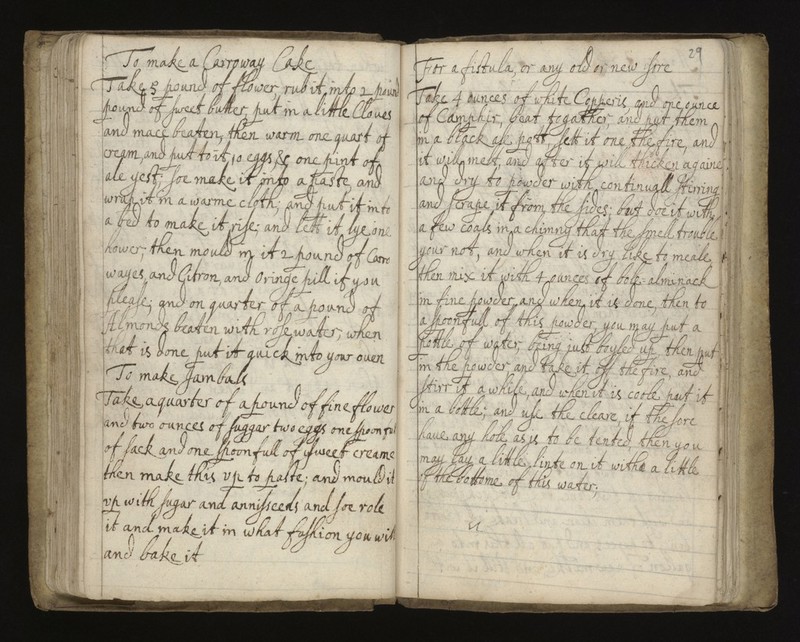 To make a Carroway Cake
Take 5 pound of flower, rub it into 2 pound
pound of sweet butter, put in a little Cloves
and mace beaten, then warm one quart of
cream, and put to it, 10 eggs & one pint of
ale yest: soe make it into a paste, and
wrap it in a warme cloth, and put it into
a bed to make it rise; and lett it lye one
hower; then mould in it 2 pound of Carro
wayes, and Citron, and Oringe pill if you
please; and on quarter of a pound of
Almonds beaten with rose water; when
that is done put it quick into your oven
To make Jambals
Take a quarter of a pound of fine flower
and two ounces of suggar two eggs one spoonful
of sack and one spoonfull of sweet creame
then make this up to paste; and mould it
up with sugar and annisseeds and soe role
it and make it in what fashion you will
and bake it
29
For a fistula, or any old or new sore
Take 4 ounces of white Copperis, and one ounce
of Camphir, beat togather, and put them
in a black pott, sett it one the fire, and
it will melt, and after it will thicken againe
and dry to powder with continuall stirring
and scrape it from the sides; but doe it with
a few coals in a chimny that the smell trouble
your not, and when it is dry like to meale
then mix it with 4 ounces of bole-alminack
in fine powder, and when it is done, then to
a spoonfull of this powder, you may put a
pottle of water being just boyled up, then put
in the powder and take it off the fire, and
stirr it a while, and when it is coole put it
in a bottle; and use the cleare, if the sore
have any hole as is to be tented, then you
may lay a little linte on it with a little
of the bottome of this water;